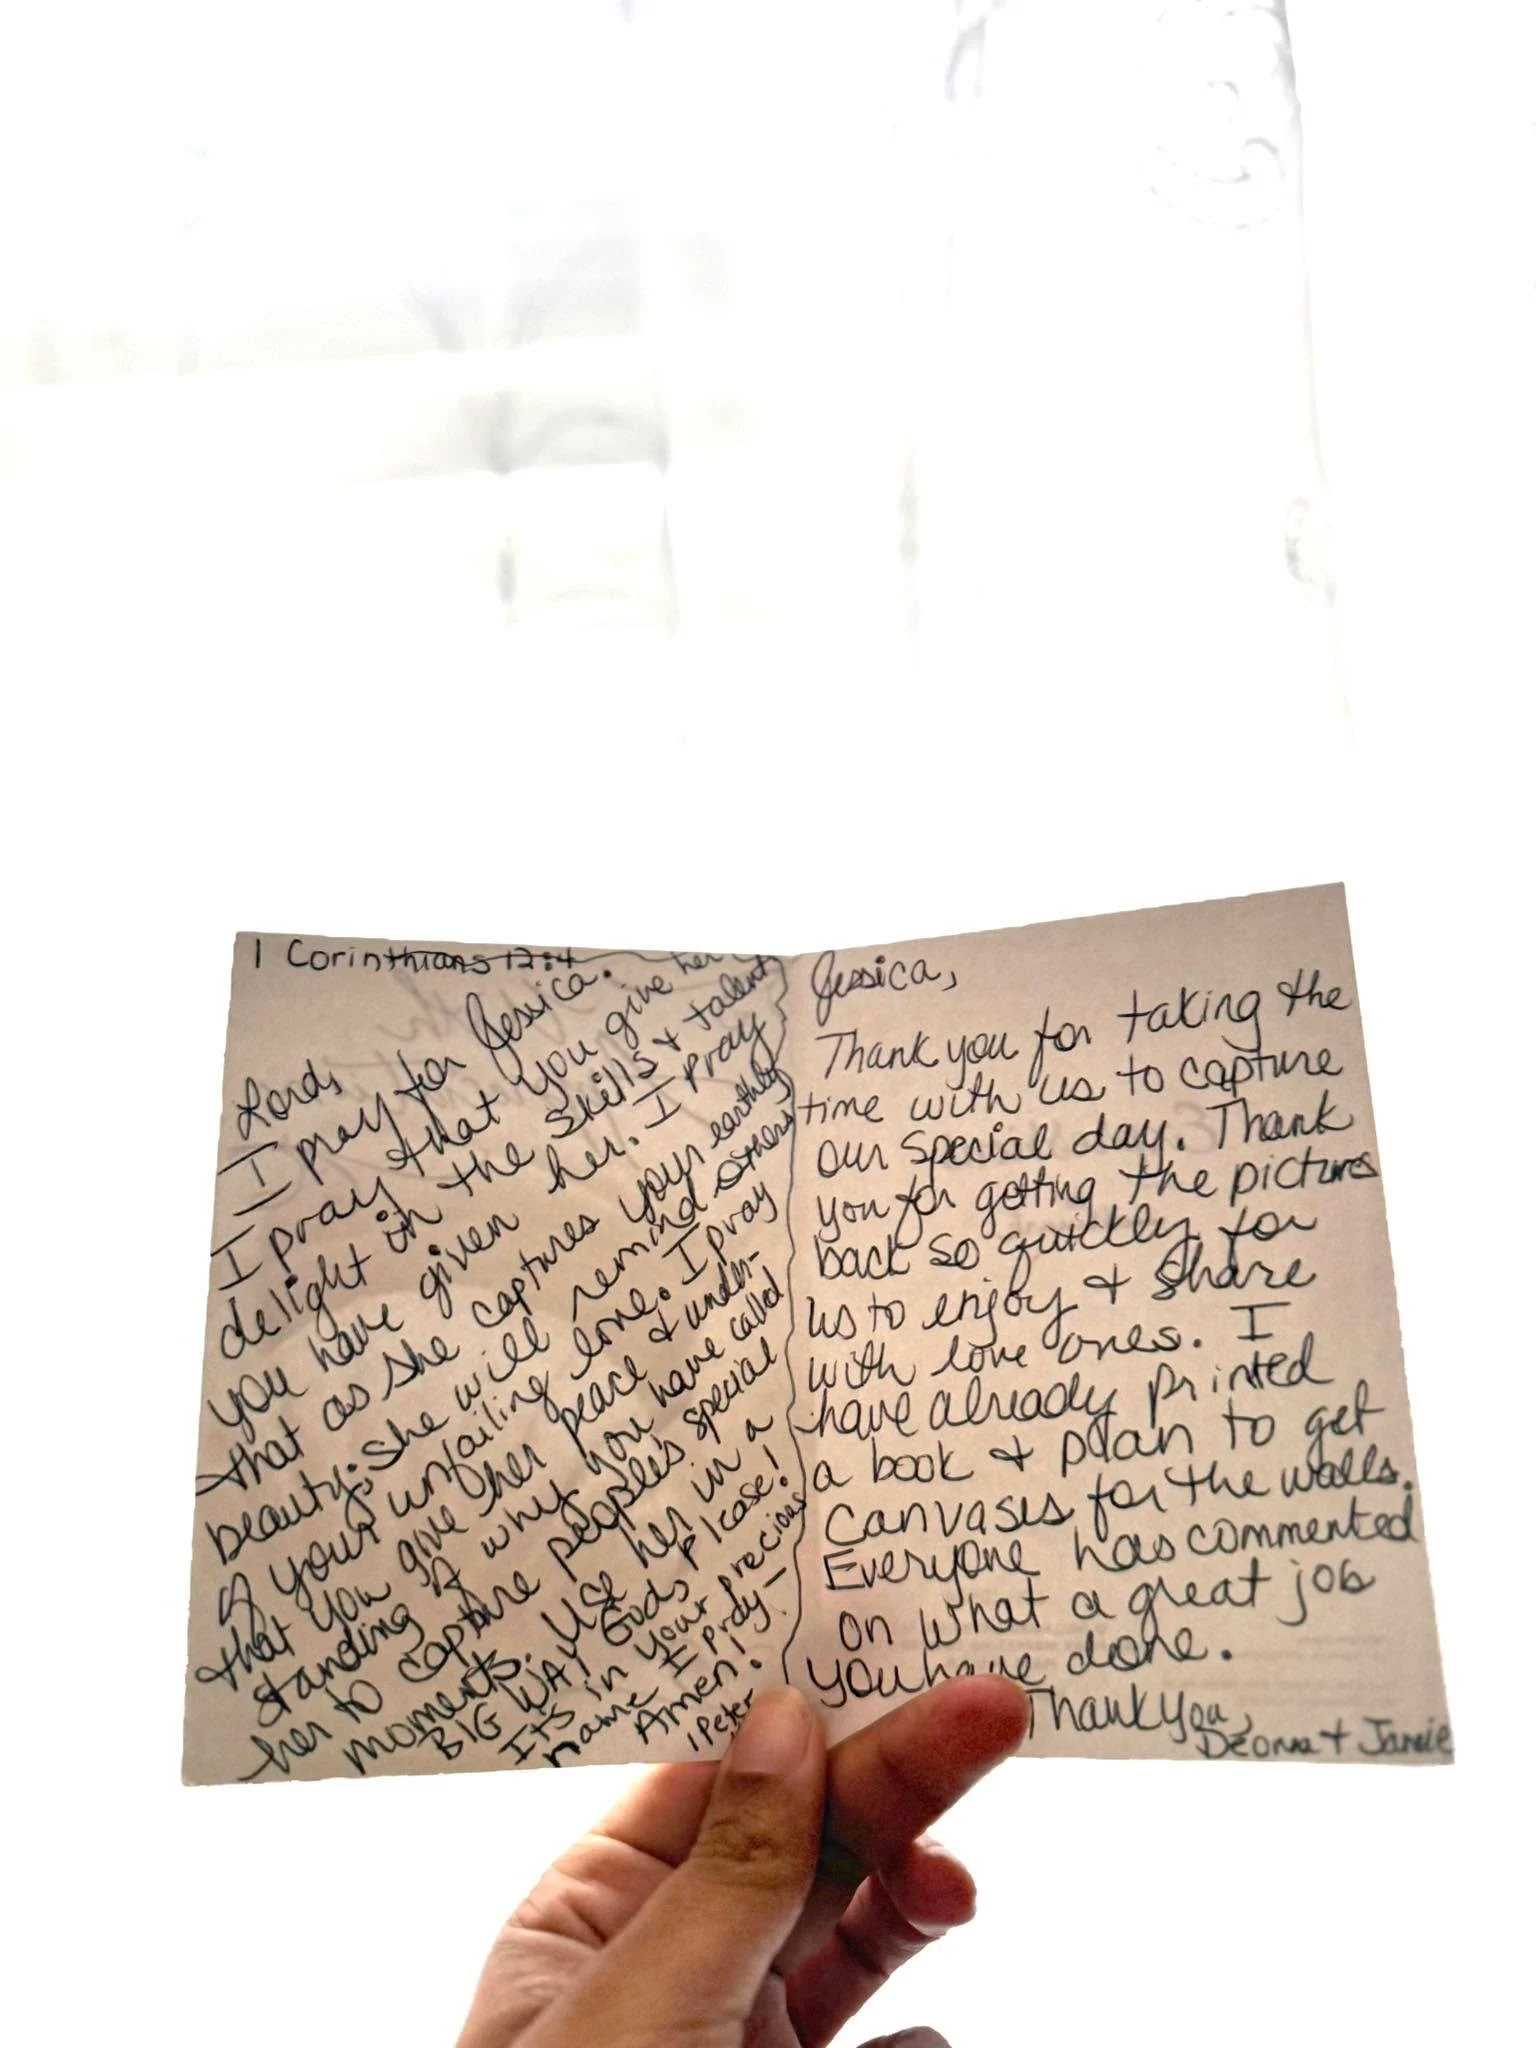 1 Corinthians 12:4
Lord,
I pray for Jessica.
I pray that you give her
delight in the skills & talent
you have given her. I pray
that as she captures your earthly
beauty, she will remind others
of your unfailing love. I pray
that you give her peace & under-
standing of why you have called
her to capture people's special
moments. Use her in a
BIG WAY Gods please!
It's in your precious
name I pray—
Amen!
1 Peter
Jessica,
Thank you for taking the
time with us to capture
our special day. Thank
you for getting the pictures
back so quickly for
us to enjoy & share
with love ones. I
have already printed
a book & plan to get
canvases for the walls.
Everyone has commented
on what a great job
you have done.
Thank you,
Deonna + Jamie